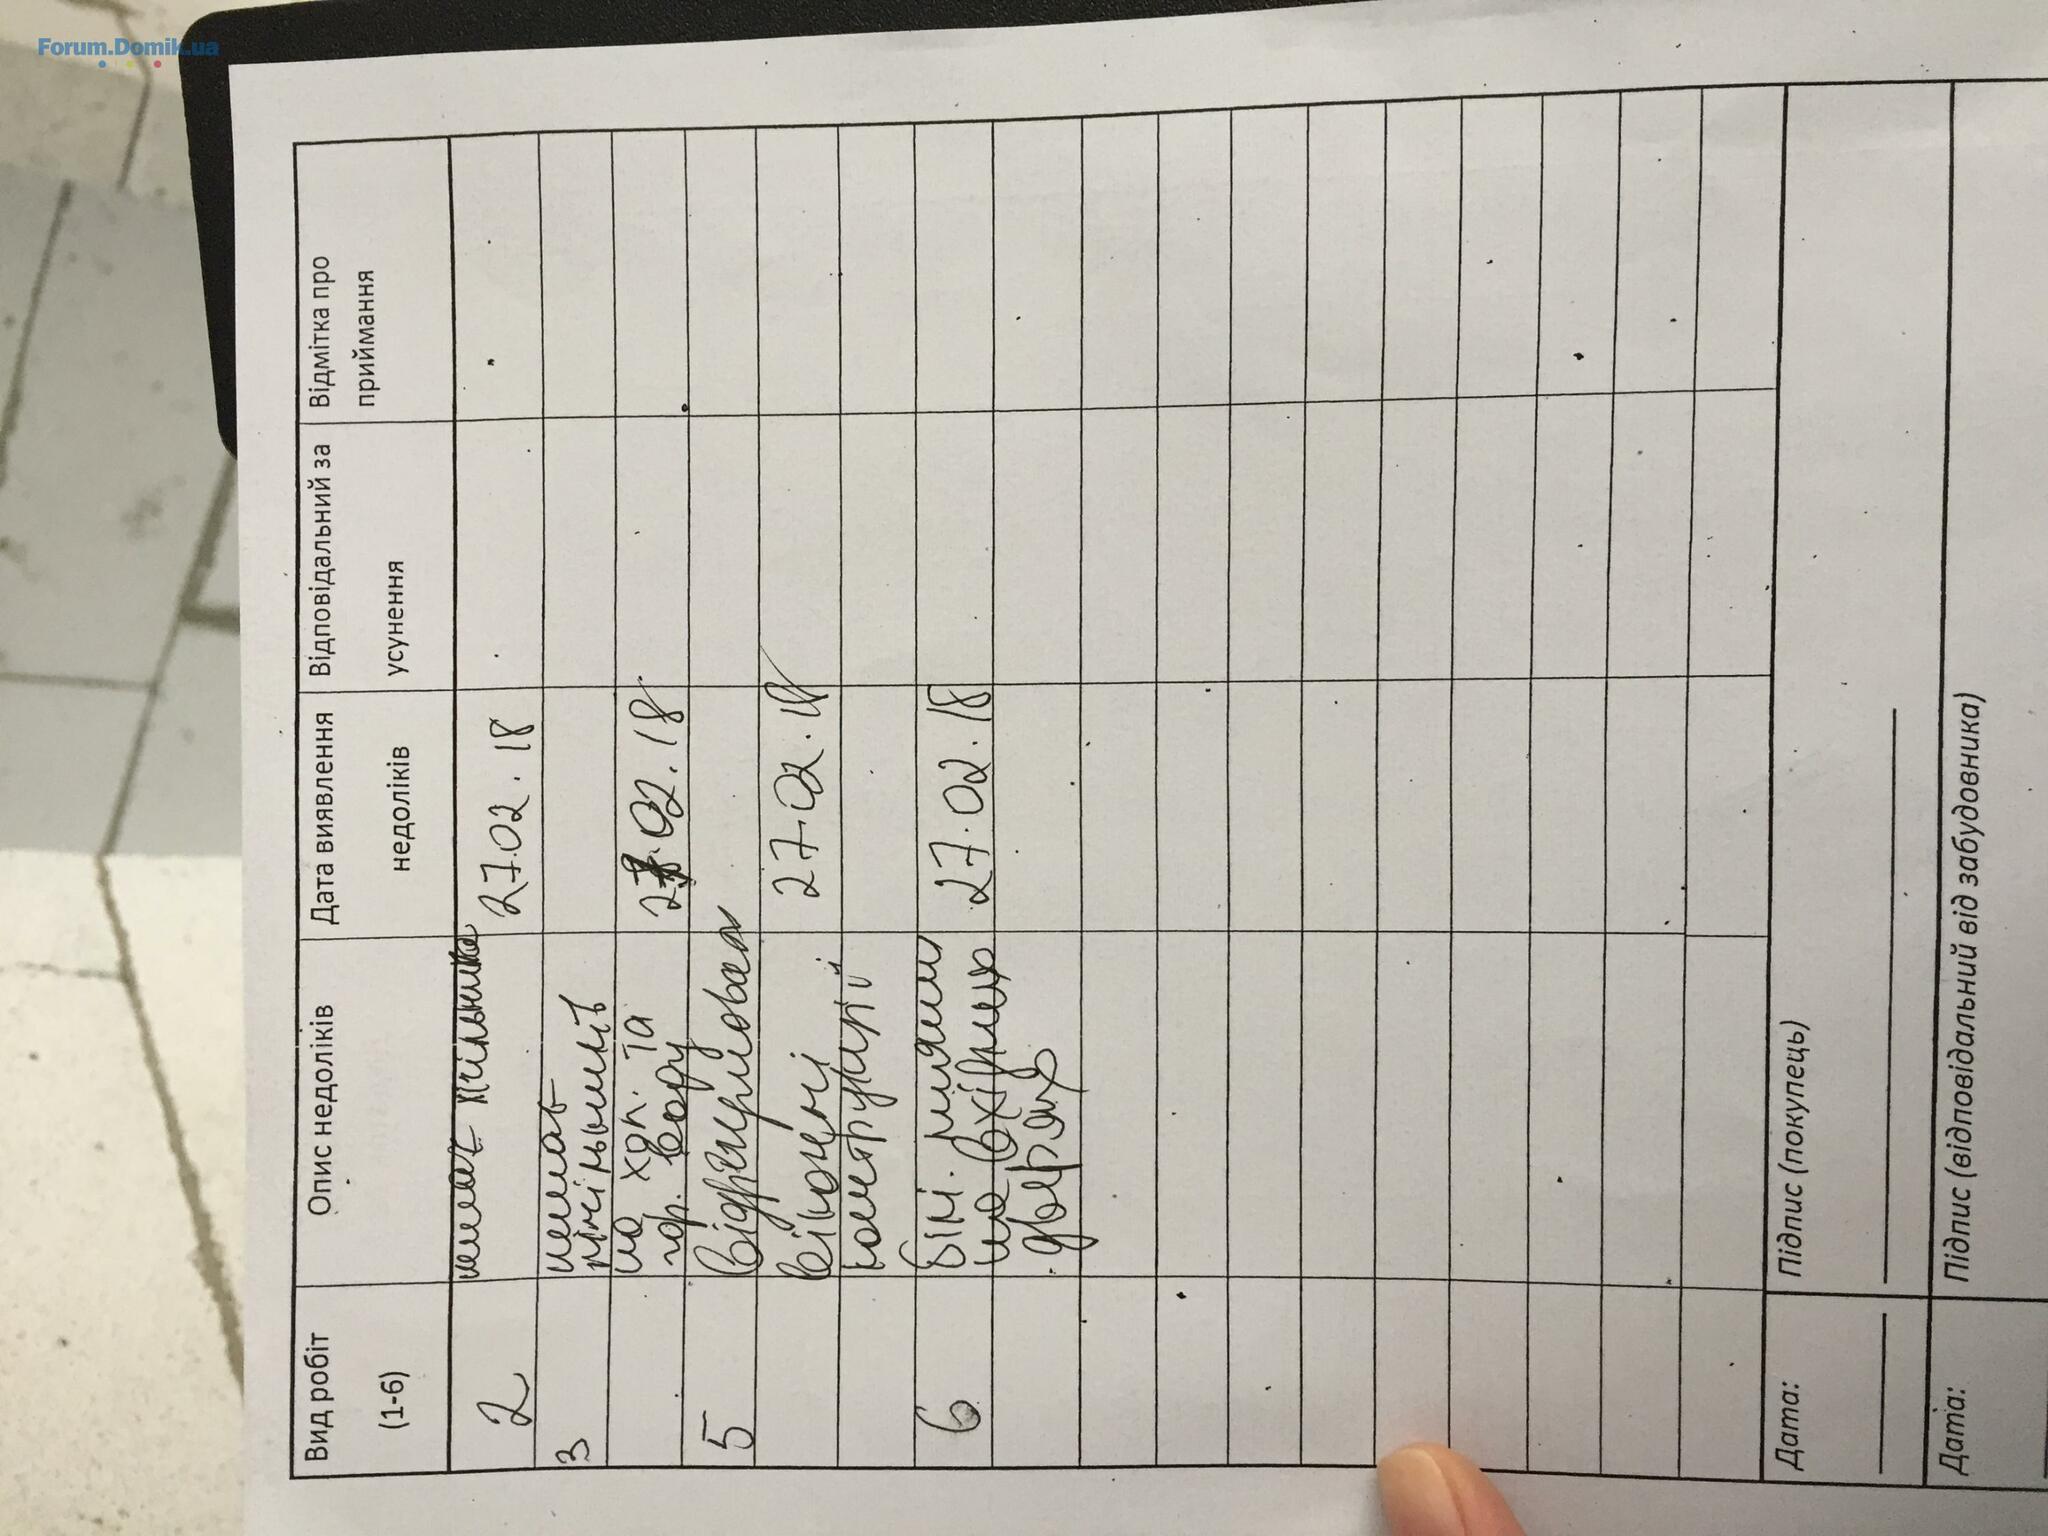 Forum.Domik.ua
Вид робіт
(1-6)
Опис недоліків
Дата виявлення
недоліків
Відповідальний за
усунення
Відмітка про
приймання
2
немає лічильника
27.02.18
3
немає
лічильників
на хол. та
гор. воду
27.02.18
5
Відрегулювати
віконні
конструкції
27.02.18
6
білі плями
на вхідних
дверях
27.02.18
Дата:
Підпис (покупець)
Дата:
Підпис (відповідальний від забудовника)